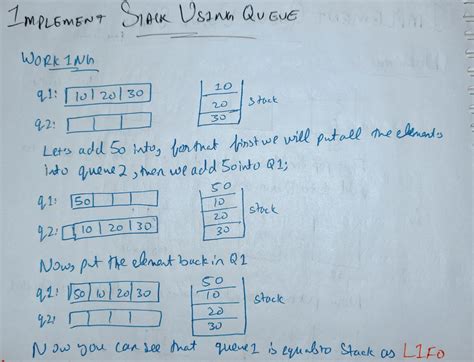 IMPLEMENT STACK USING QUEUE
WORKING
q1: 10 20 30
q2:
10
20
30
Stack
Lets add 50 into, for that first we will put all the elements
into queue 2, then we add 50 into Q1;
q1: 50
q2: 10 20 30
50
10
20
30
Stack
Now, put the element back in Q1
q1: 50 10 20 30
q2:
50
10
20
30
Stack
Now you can see that queue 1 is equals to Stack as LIFO